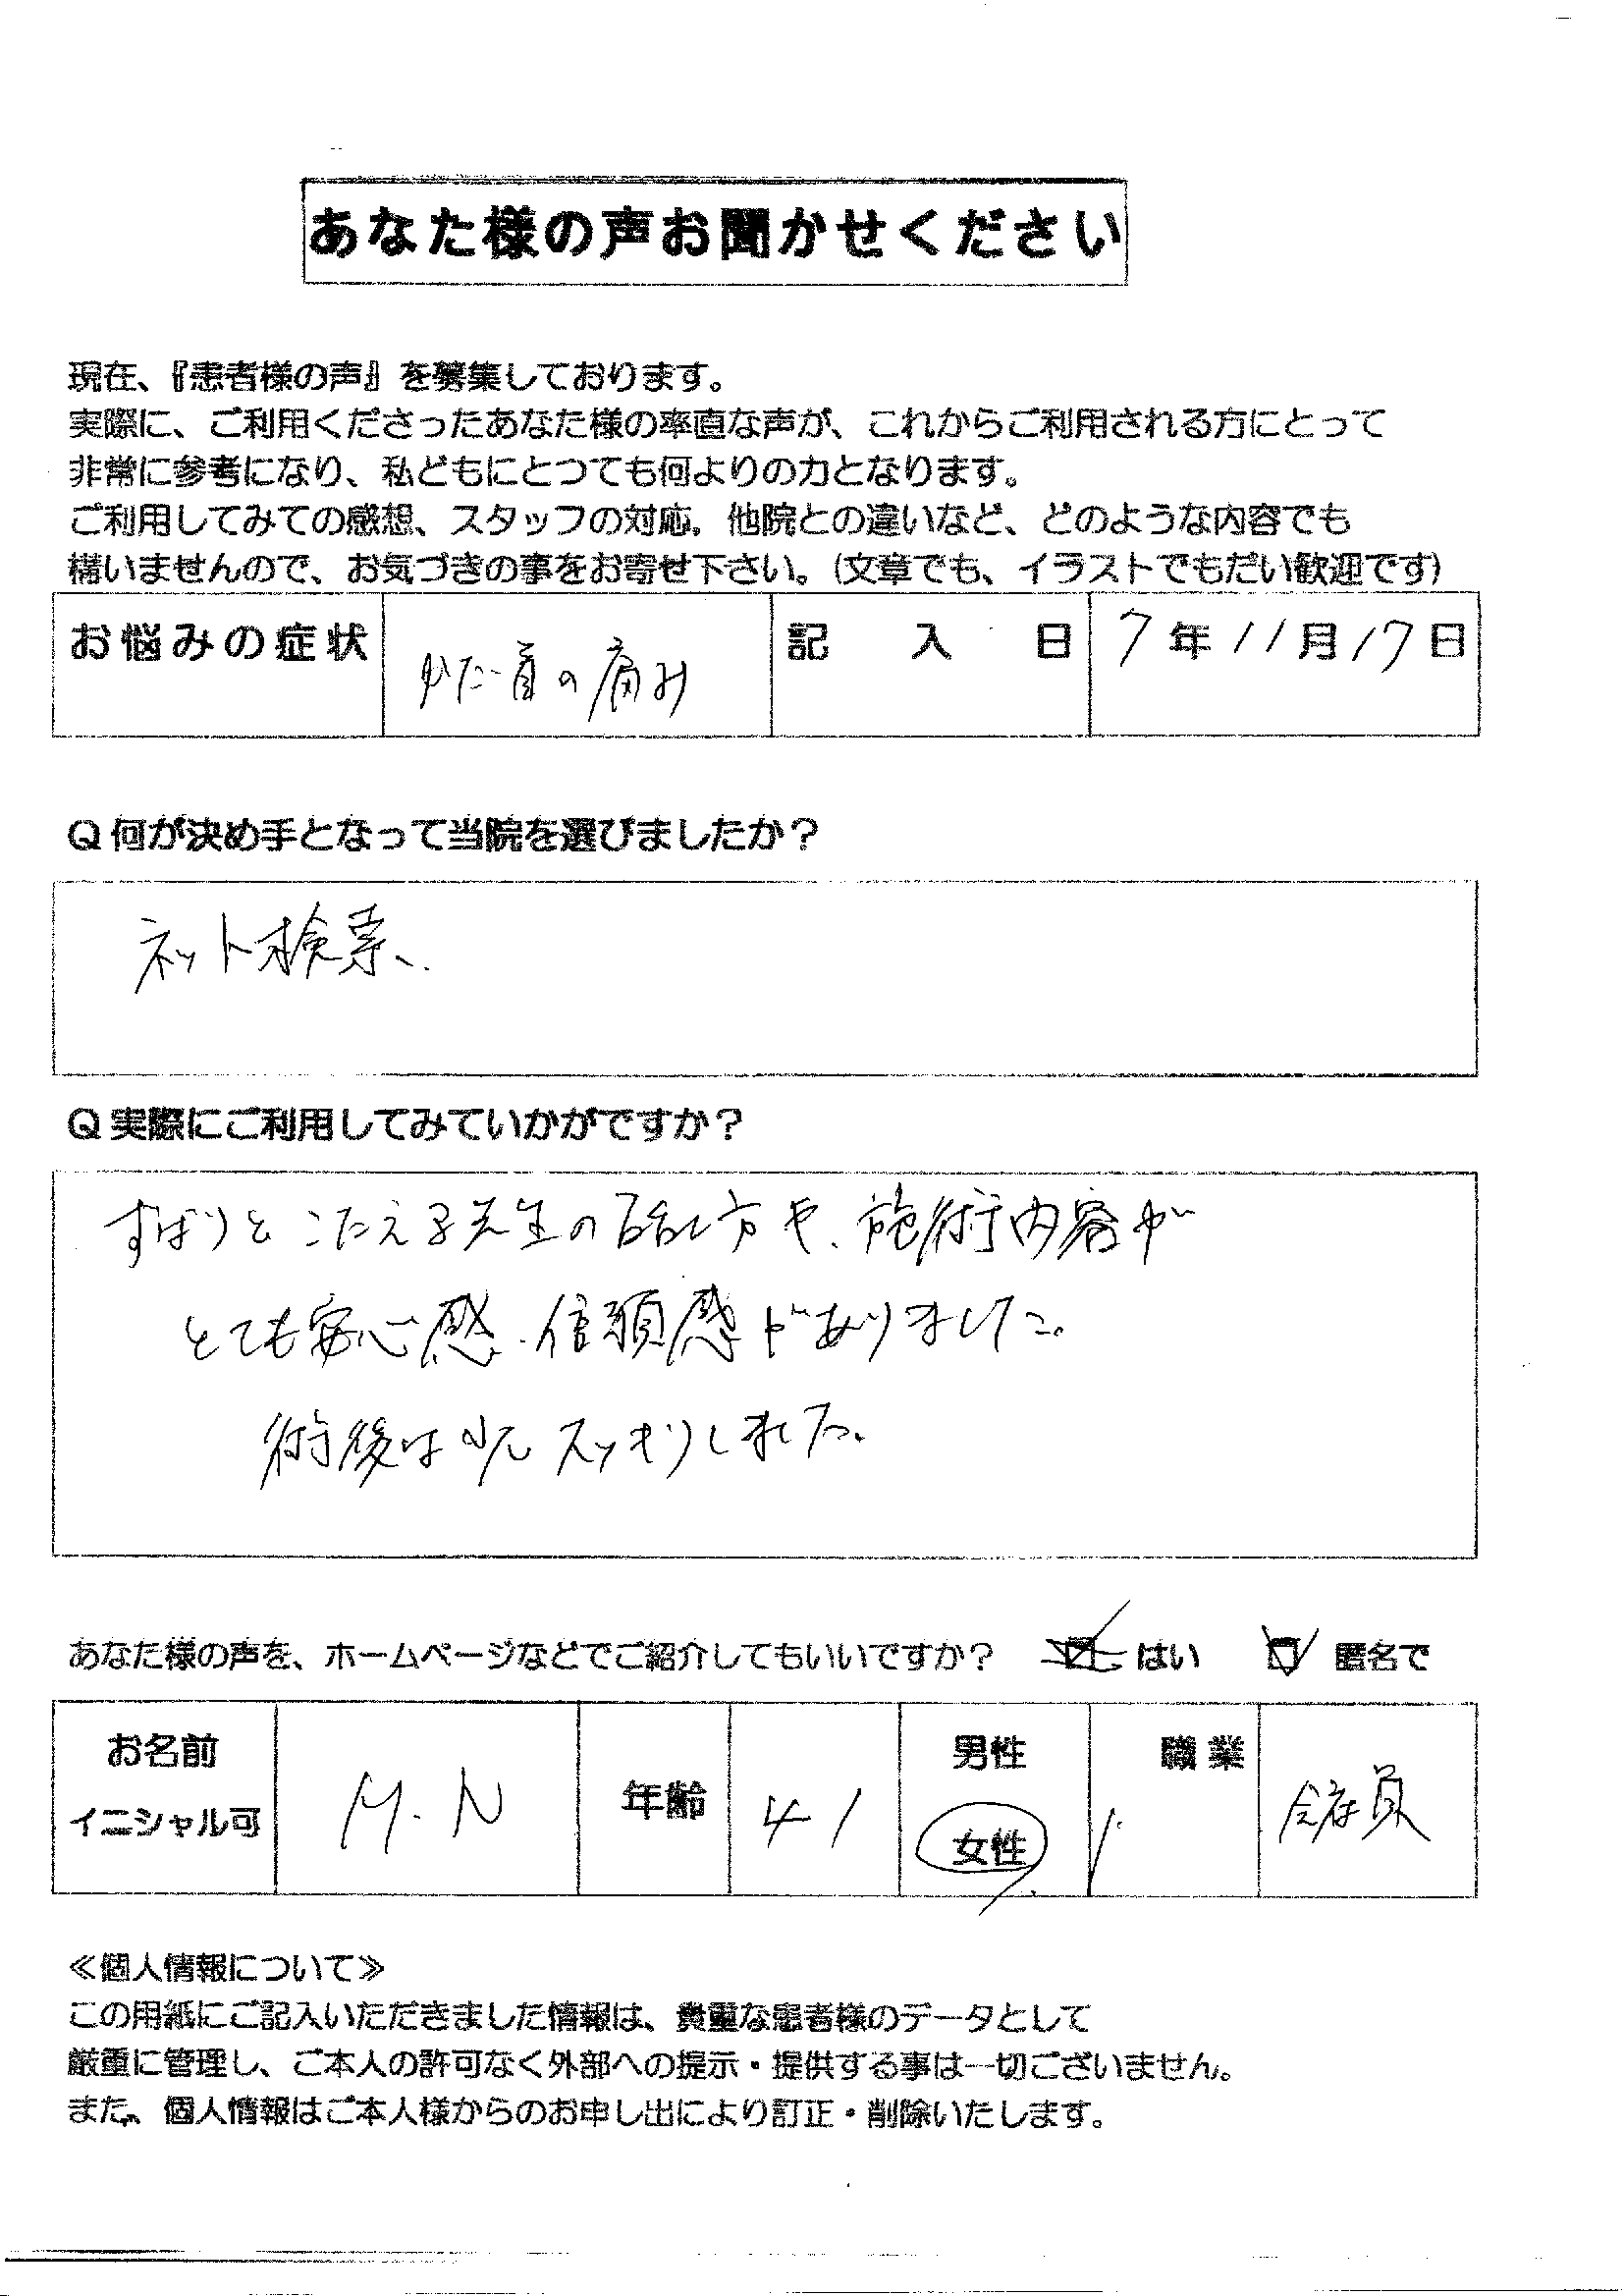 あなた様の声お聞かせください
現在、『患者様の声』を募集しております。
実際に、ご利用くださったあなた様の率直な声が、これからご利用される方にとって
非常に参考になり、私どもにとつても何よりの力となります。
ご利用してみての感想、スタッフの対応、他院との違いなど、どのような内容でも
構いませんので、お気づきの事をお寄せ下さい。(文章でも、イラストでもだい歓迎です)
お悩みの症状 かた・首の痛み 記入日 7年11月17日
Q何が決め手となって当院を選びましたか？
ネット検索、
Q実際にご利用してみていかがですか？
ずばりとこたえる先生の話し方や、施術内容が
とても安心感・信頼感がありました。
術後は少しスッキリしました。
あなた様の声を、ホームページなどでご紹介してもいいですか？ はい 匿名で
お名前 イニシャル可 M.N 年齢 41 男性 女性 職業 会社員
≪個人情報について≫
この用紙にご記入いただきました情報は、貴重な患者様のデータとして
厳重に管理し、ご本人の許可なく外部への提示・提供する事は一切ございません。
また、個人情報はご本人様からのお申し出により訂正・削除いたします。